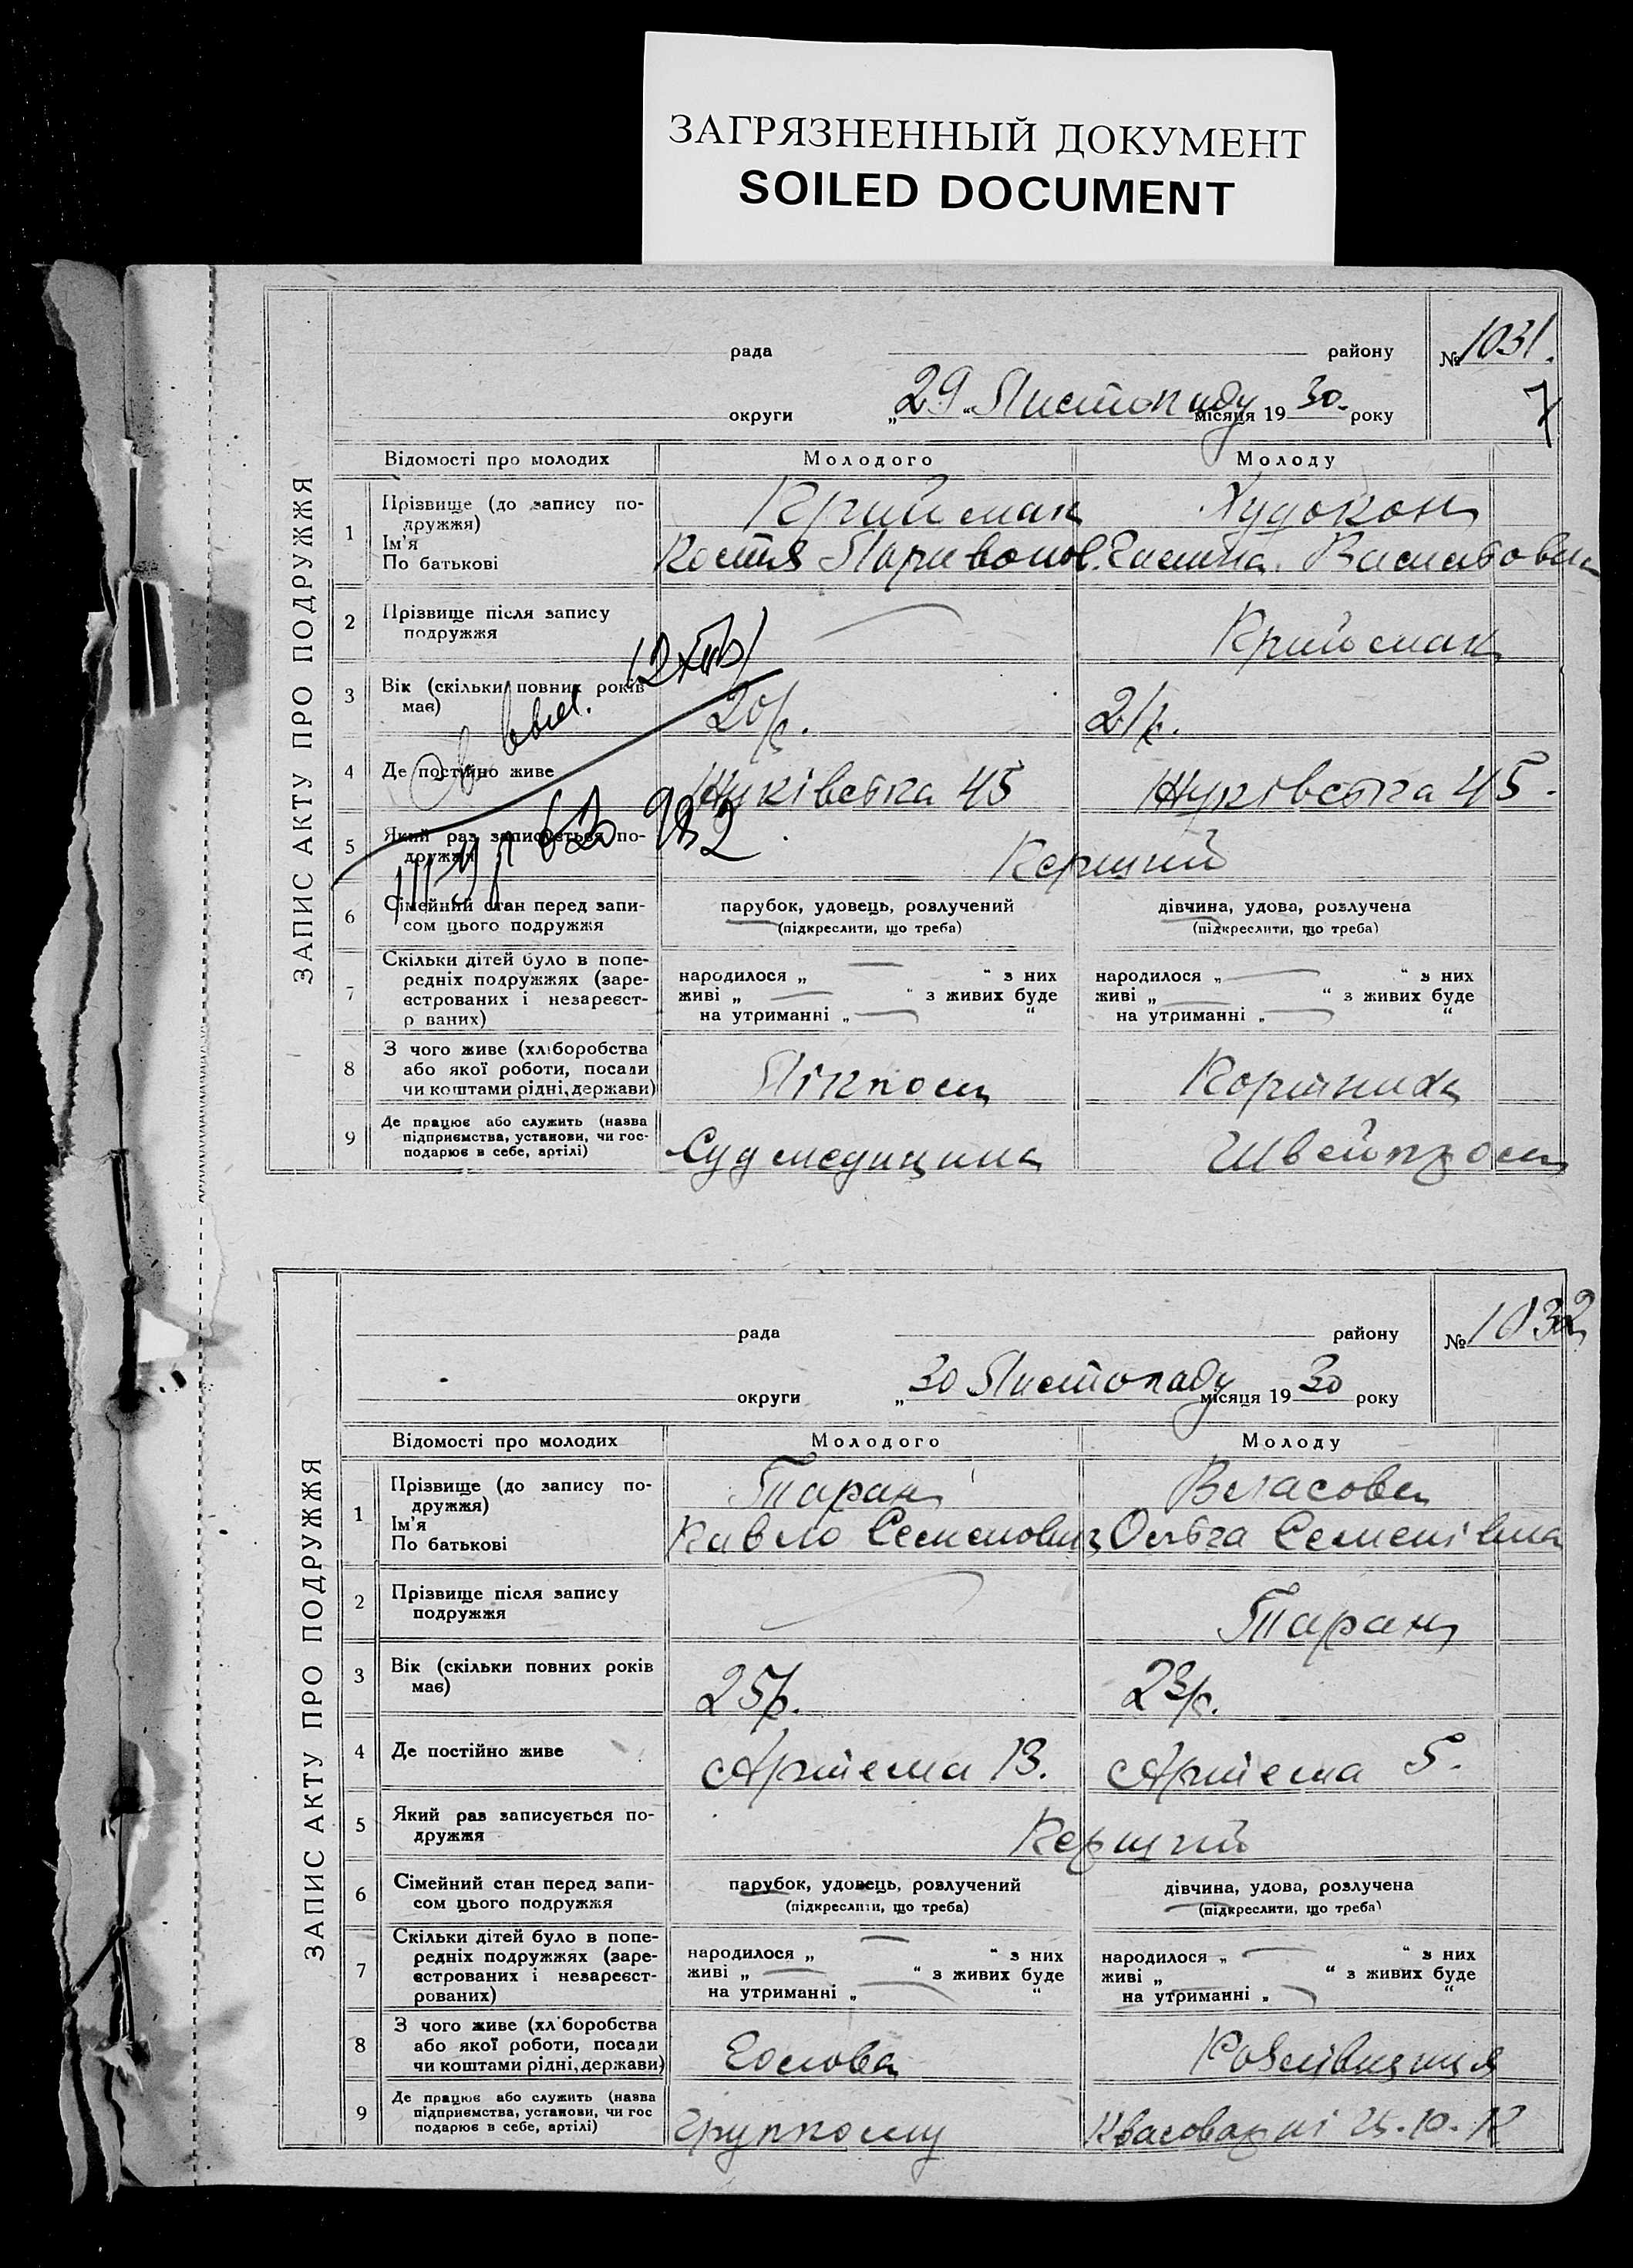 ЗАГРЯЗНЕННЫЙ ДОКУМЕНТ
SOILED DOCUMENT
ЗАПИС АКТУ ПРО ПОДРУЖЖЯ
рада району № 1031.
7
округи „29“ Листопаду місяця 1930. року
Відомості про молодих Молодого Молоду
1 Прізвище (до запису подружжя) Худокон
Ім'я
По батькові Костя
2 Прізвище після запису
подружжя
3 Вік (скільки повних років
має) 20 р. 21 р.
4 Де постійно живе 45 45.
5 Який раз записується по-
дружжя Перший
6 Сімейний стан перед запи-
сом цього подружжя парубок, удовець, розлучений дівчина, удова, розлучена
(підкреслити, що треба) (підкреслити, що треба)
7 Скільки дітей було в попе-
редніх подружжях (заре-
єстрованих і незареєст-
р ваних)
народилося „ “ з них народилося „ “ з них
живі „ “ з живих буде живі „ “ з живих буде
на утриманні „ “ на утриманні „ “
8 З чого живе (хліборобства
або якої роботи, посади
чи коштами рідні, держави) Лікпом
9 Де працює або служить (назва
підприємства, установи, чи гос-
подарює в себе, артілі) Судмедицина Швейпром
ЗАПИС АКТУ ПРО ПОДРУЖЖЯ
рада району № 1032
округи „30 Листопаду місяця 1930 року
Відомості про молодих Молодого Молоду
1 Прізвище (до запису по-
дружжя) Таран Власова
Ім'я
По батькові Павло Семенович Ольга Семенівна
2 Прізвище після запису
подружжя Таран
3 Вік (скільки повних років
має) 25 р. 23 р.
4 Де постійно живе Артема 13. Артема 5.
5 Який раз записується по-
дружжя Перший
6 Сімейний стан перед запи-
сом цього подружжя парубок, удовець, розлучений дівчина, удова, розлучена
(підкреслити, що треба) (підкреслити, що треба)
7 Скільки дітей було в попе-
редніх подружжях (заре-
єстрованих і незареєст-
рованих)
народилося „ “ з них народилося „ “ з них
живі „ “ з живих буде живі „ “ з живих буде
на утриманні „ “ на утриманні „ “
8 З чого живе (хліборобства
або якої роботи, посади
чи коштами рідні, держави) Голова
9 Де працює або служить (назва
підприємства, установи, чи гос
подарює в себе, артілі) Групкому